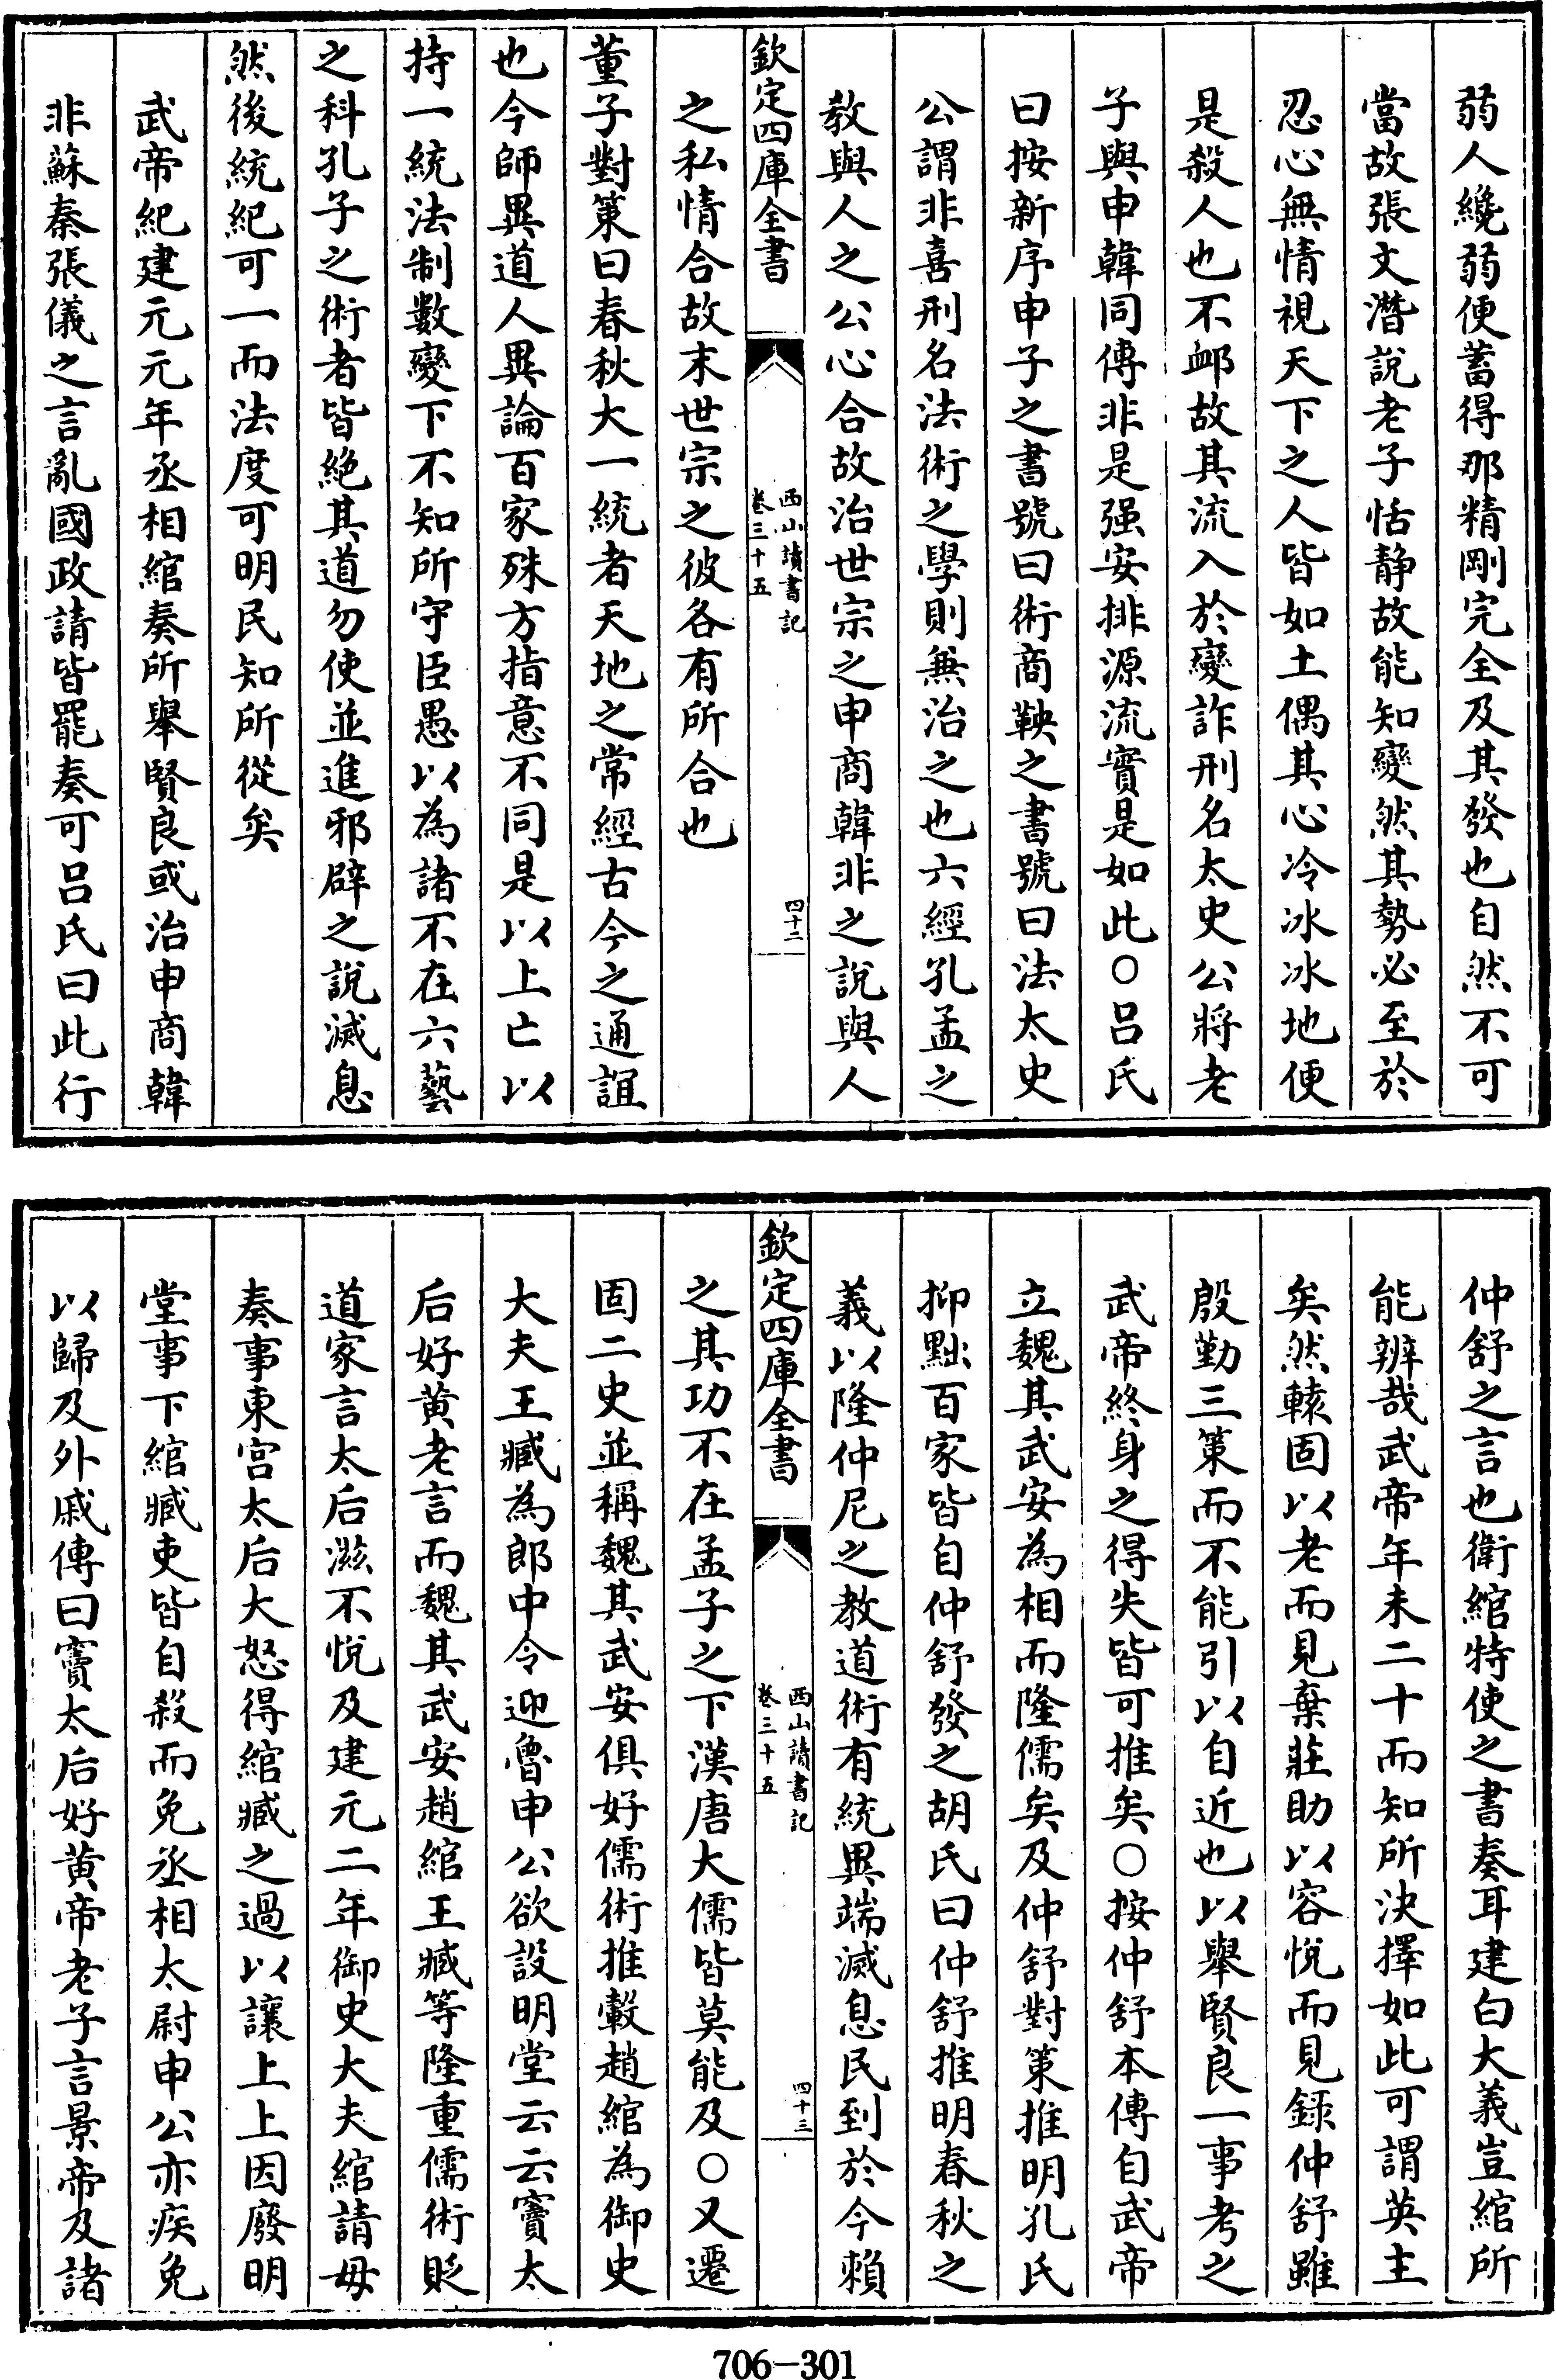 弱人纔弱便蓄得那精剛完全及其發也自然不可
當故張文潛說老子恬静故能知變然其勢必至於
忍心無情視天下之人皆如土偶其心冷冰冰地便
是殺人也不䘏故其流入於變詐刑名太史公將老
子與申韓同傳非是强安排源流實是如此○吕氏
曰按新序申子之書號曰術商鞅之書號曰法太史
公謂非喜刑名法術之學則兼治之也六經孔孟之
教與人之公心合故治世宗之申商韓非之說與人
欽定四庫全書
西山讀書記
卷三十五
四十二
之私情合故末世宗之彼各有所合也
董子對策曰春秋大一統者天地之常經古今之通誼
也今師異道人異論百家殊方指意不同是以上亡以
持一統法制數變下不知所守臣愚以為諸不在六藝
之科孔子之術者皆絶其道勿使並進邪辟之說滅息
然後統紀可一而法度可明民知所從矣
武帝紀建元元年丞相綰奏所舉賢良或治申商韓
非蘇秦張儀之言亂國政請皆罷奏可吕氏曰此行
仲舒之言也衛綰特使之書奏耳建白大義豈綰所
能辨哉武帝年未二十而知所決擇如此可謂英主
矣然轅固以老而見棄莊助以容悅而見錄仲舒雖
殷勤三策而不能引以自近也以舉賢良一事考之
武帝終身之得失皆可推矣○按仲舒本傳自武帝
立魏其武安為相而隆儒矣及仲舒對策推明孔氏
抑黜百家皆自仲舒發之胡氏曰仲舒推明春秋之
義以隆仲尼之教道術有統異端滅息民到於今賴
欽定四庫全書
西山讀書記
卷三十五
四十三
之其功不在孟子之下漢唐大儒皆莫能及○又遷
固二史並稱魏其武安俱好儒術推轂趙綰為御史
大夫王臧為郎中令迎魯申公欲設明堂云云竇太
后好黄老言而魏其武安趙綰王臧等隆重儒術貶
道家言太后滋不悅及建元二年御史大夫綰請毋
奏事東宫太后大怒得綰臧之過以讓上上因廢明
堂事下綰臧吏皆自殺而免丞相太尉申公亦疾免
以歸及外戚傳曰竇太后好黄帝老子言景帝及諸
706-301